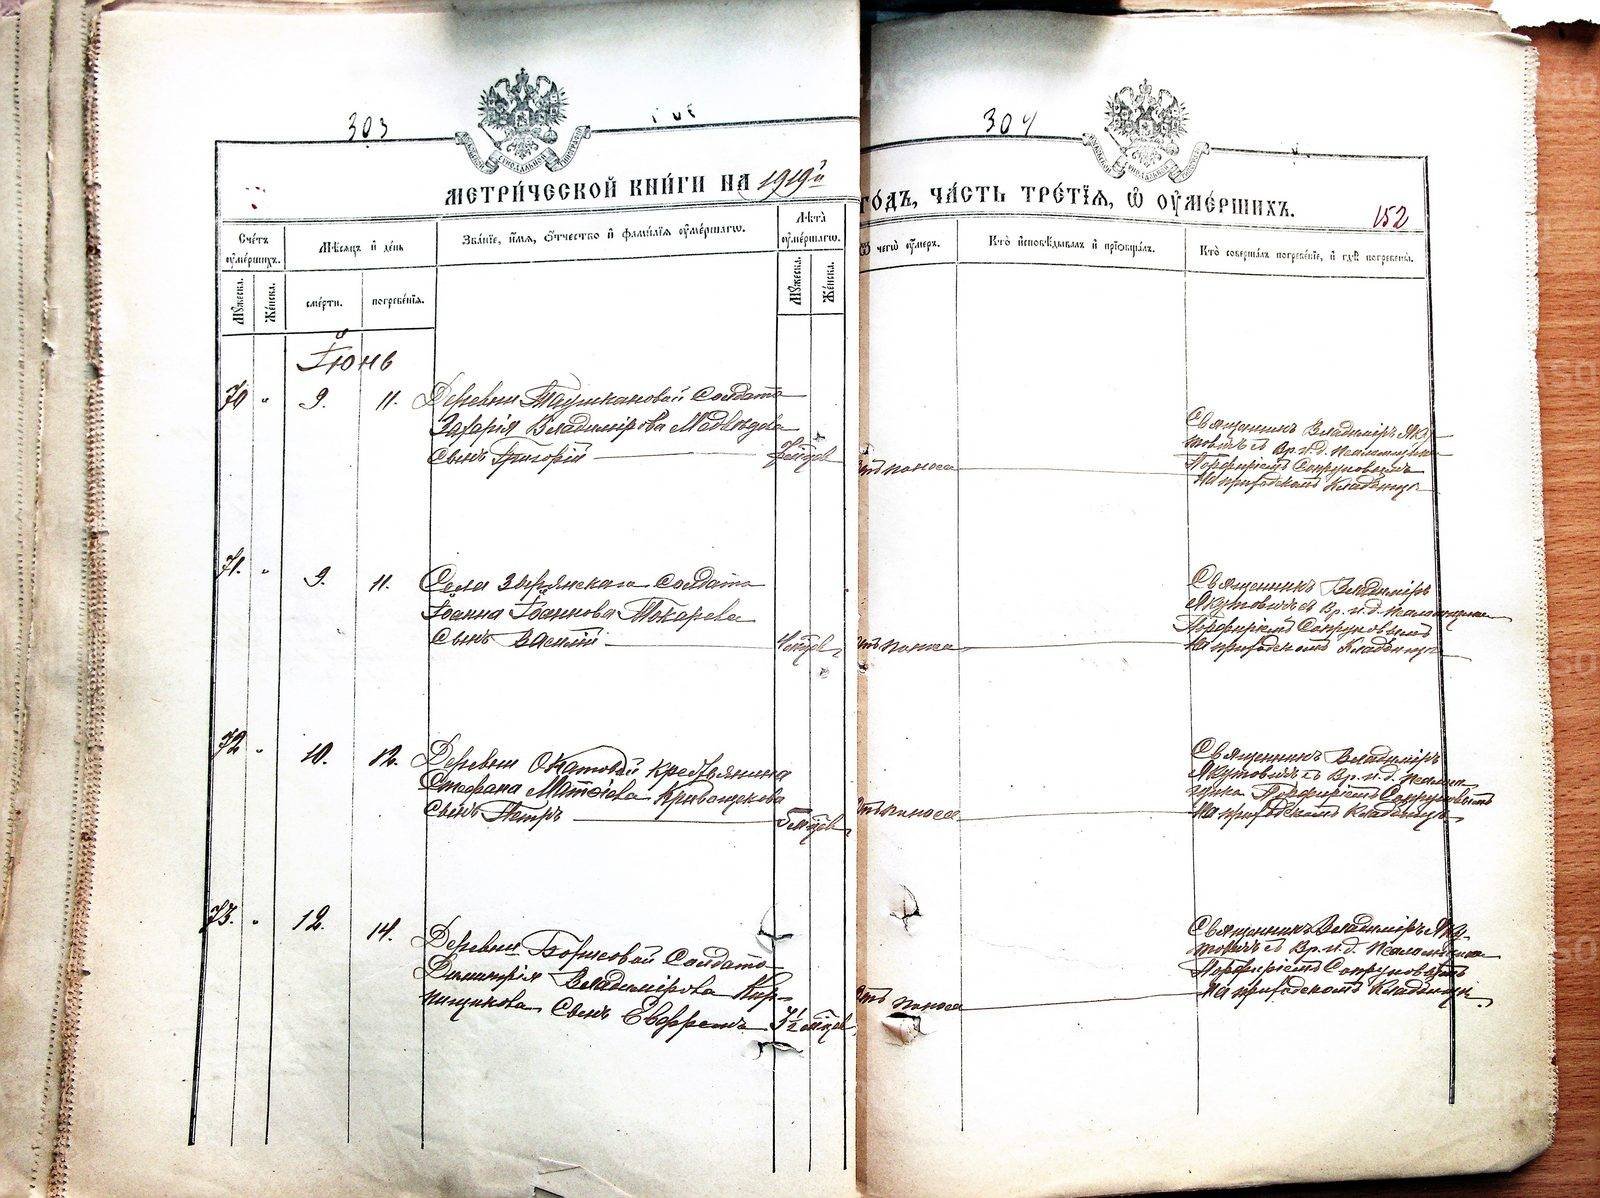 303
304
МЕТРИ́ЧЕСКОЙ КНИ́ГИ НА 1919й ГОДЪ, ЧА́СТЬ ТРЕ́ТІѦ, Ѡ ОУМЕ́РШИХЪ.
152
Сче́тъ оумершихъ.
Мѣсѧцъ и день
Зва́нїе, и́мѧ, о́тчество и фами́лїѧ оуме́ршагѡ.
Лѣта оуме́ршагѡ.
Ѿ чегѡ̀ оу́меръ.
Кто̀ исповѣ́дывалъ и прїѡбща́лъ.
Кто̀ соверша́лъ погребе́нїе, и гдѣ̀ погребены̀.
Мꙋжеска.
Же́нска.
сме́рти.
погребе́нїѧ.
Мꙋжеска.
Же́нска.
Іюнь
70 " 9. 11. Деревни Солдата
Захарія Владимірова Медвѣдева
сынъ Григорій
отъ поноса
Священникъ Владиміръ Яку
товичъ съ Вр. и. д. псаломщика
Порфиріемъ Сопруновымъ
На приходскомъ Кладбищѣ
71. " 9. 11. Села Зырянскаго солдата
Іоанна Іоаннова Токарева
Сынъ Василій
отъ поноса
Священникъ Владиміръ
Якутовичъ съ Вр. и. д. псаломщика
Порфиріемъ Сопруновымъ
На приходскомъ Кладбищѣ
72 " 10. 12. Деревни Окатовой крестьянина
Стефана Матѳіева Кривощекова
Сынъ Петръ
5 мѣсяцев
отъ поноса
Священникъ Владиміръ
Якутовичъ съ Вр. и. д. псалом
щика Порфиріемъ Сопруновымъ
На приходскомъ Кладбищѣ
73. " 12. 14. Деревни Борисовой Солдата
Димитрія Владимірова Кир-
пищикова Сынъ Евфремъ
отъ поноса
Священникъ Владиміръ Яку-
товичъ съ Вр. и. д. псаломщика
Порфиріемъ Сопруновымъ
На приходскомъ Кладбищѣ